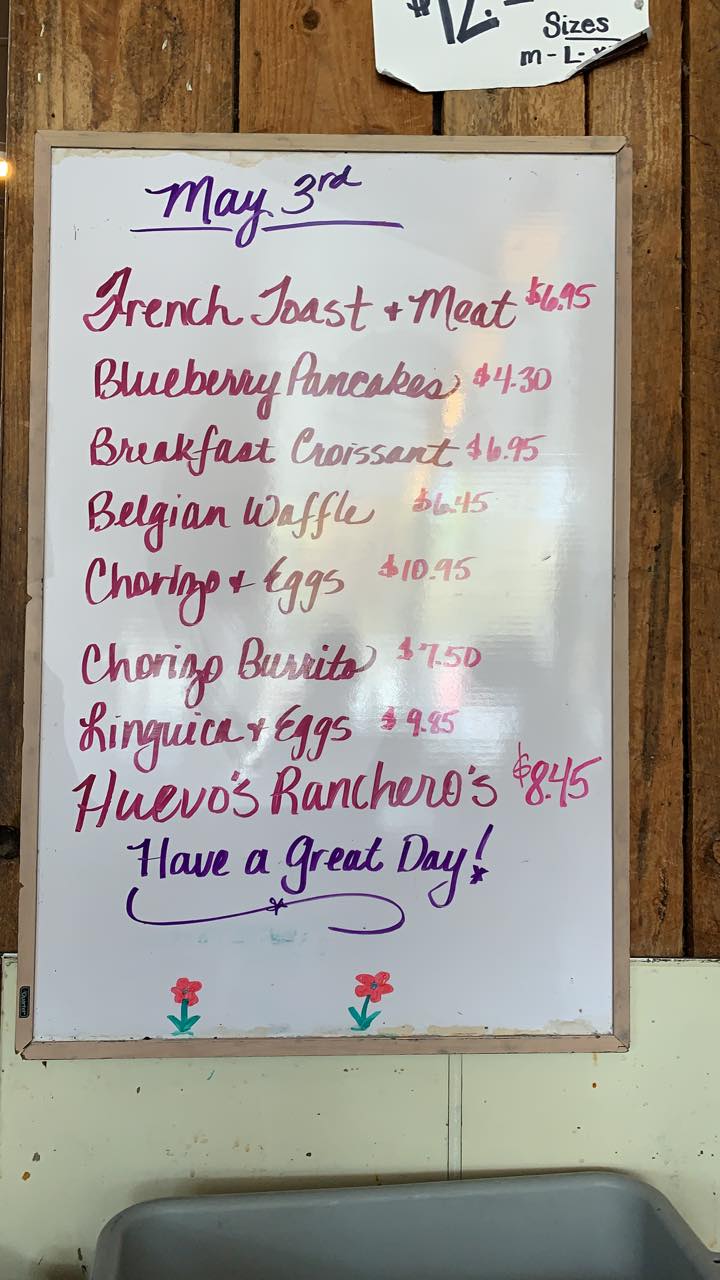 $12.
Sizes
m - L -
May 3rd
French Toast + Meat $6.95
Blueberry Pancakes $4.30
Breakfast Croissant $6.95
Belgian Waffle $6.45
Chorizo + Eggs $10.95
Chorizo Burrito $7.50
Linguica + Eggs $9.85
Huevo's Ranchero's $8.45
Have a Great Day!
Quartet